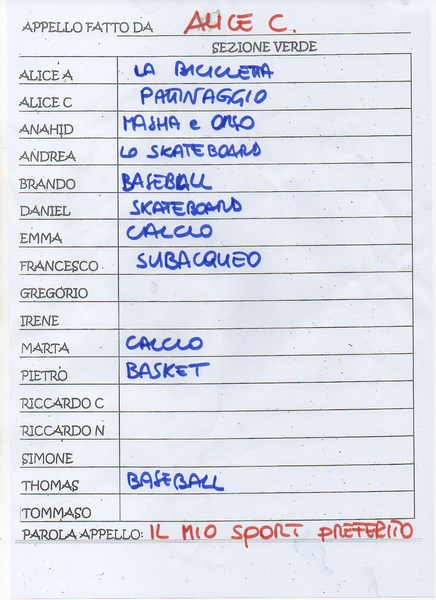 APPELLO FATTO DA ALICE C.
SEZIONE VERDE
ALICE A LA BICICLETTA
ALICE C PATTINAGGIO
ANAHID MASHA e ORSO
ANDREA LO SKATEBOARD
BRANDO BASEBALL
DANIEL SKATEBOARD
EMMA CALCIO
FRANCESCO SUBACQUEO
GREGORIO
IRENE
MARTA CALCIO
PIETRO BASKET
RICCARDO C
RICCARDO N
SIMONE
THOMAS BASEBALL
TOMMASO
PAROLA APPELLO: IL MIO SPORT PREFERITO